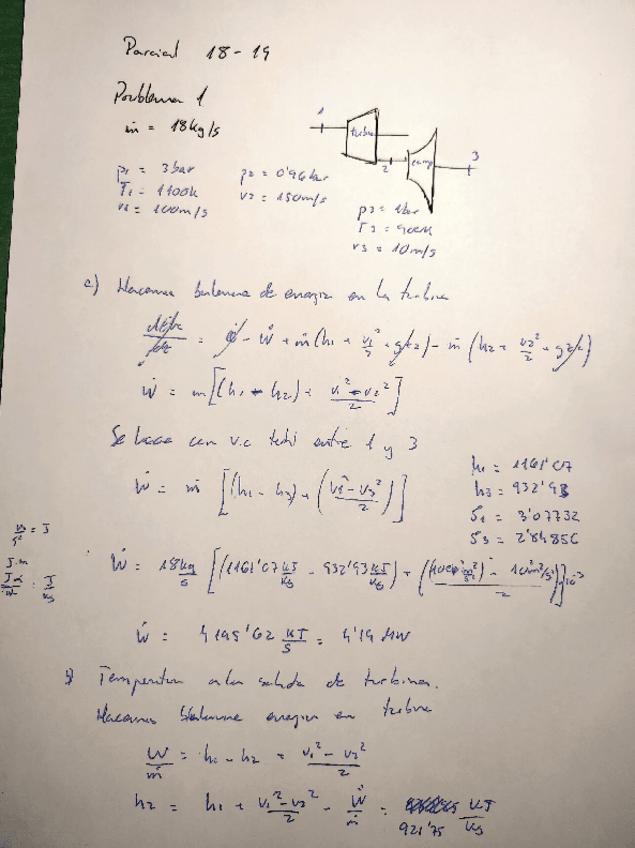 Parcial 18-19
Problema 1
ṁ = 18kg/s
1
turbina
2
comp
3
p1 = 3bar
T1 = 1100k
v1 = 100m/s
p2 = 0'96bar
v2 = 150m/s
p3 = 1bar
T3 = 900k
v3 = 10m/s
a) Hacemos balance de energia en la turbina
= Q̇ - Ẇ + ṁ (h1 + v1²/2 + gz1) - ṁ (h2 + v2²/2 + gz2)
Ẇ = ṁ[(h1 - h2) + (v1² - v2²)/2]
Se hace con v.c entre 1 y 3
Ẇ = ṁ [(h1 - h3) + ((v1² - v3²)/2)]
h1 = 1161'07
h3 = 932'93
S1 = 3'07732
S3 = 2'84856
Ẇ = 18 kg/s [(1161'07 kJ/kg - 932'93 kJ/kg) + ( - 10² m²/s²)/2)]10⁻³
Ẇ = 4195'62 kJ/s = 4'19 MW
b) Temperatura a la salida de turbina.
Hacemos balance energia en turbina
Ẇ/ṁ = h1 - h2 = (v1² - v2²)/2
h2 = h1 + (v1² - v2²)/2 - Ẇ/ṁ = 921'75 kJ/kg